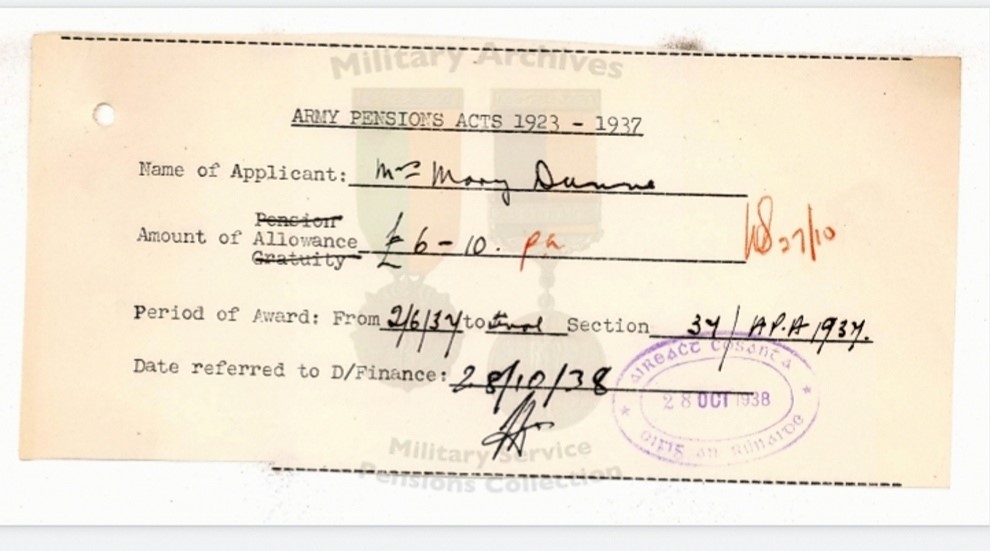 Military Archives
ARMY PENSIONS ACTS 1923 - 1937
Name of Applicant: Mrs Mary Dunne
Pension
Amount of Allowance £6-10. pa
Gratuity
27/10
Period of Award: From 2/6/37 to final Section 37 / A.P.A 1937.
Date referred to D/Finance: 28/10/38
AIREACT COSANTA
28 OCT 1938
OIFIS AN RÚNAIDE
Military Service
Pensions Collection